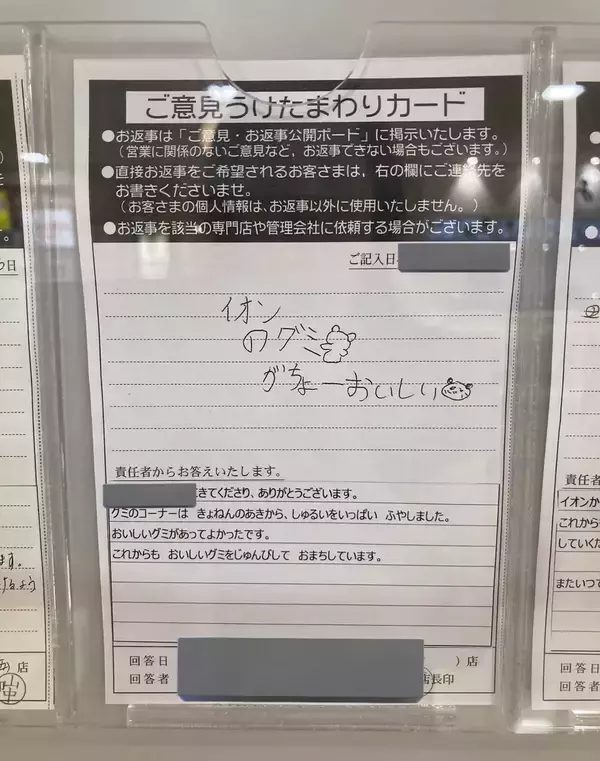 ご意見うけたまわりカード
●お返事は「ご意見・お返事公開ボード」に掲示いたします。
（営業に関係のないご意見など，お返事できない場合もございます。）
●直接お返事をご希望されるお客さまは，右の欄にご連絡先を
お書きくださいませ。
（お客さまの個人情報は、お返事以外に使用いたしません。）
●お返事を該当の専門店や管理会社に依頼する場合がございます。
ご記入日
イオン
のグミ
がちょーおいしい
責任者からお答えいたします。
きてくださり、ありがとうございます。
グミのコーナーは きょねんのあきから、しゅるいをいっぱい ふやしました。
おいしいグミがあってよかったです。
これからも おいしいグミをじゅんびして おまちしています。
回答日 ）店
回答者 店長印
す。
日
ます。
けるよう
店
責任者
イオンか
これから
していくだ
またいつて
回答日
回答者